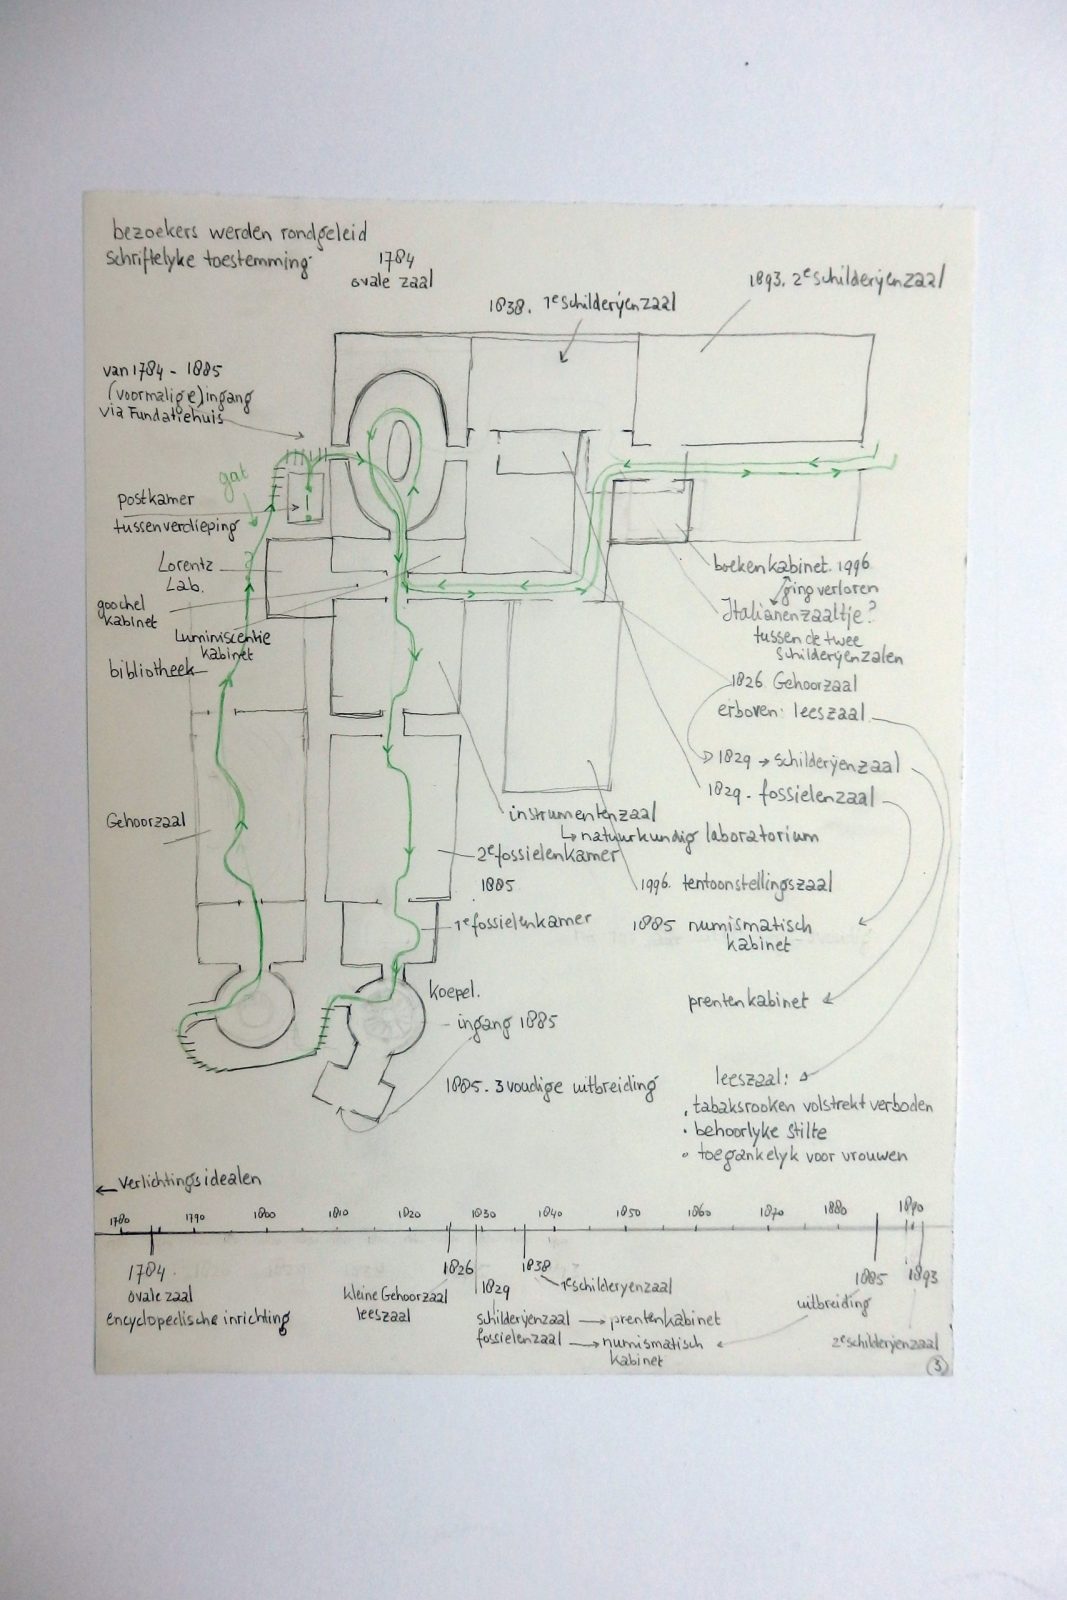 bezoekers werden rondgeleid
schriftelyke toestemming
1784
ovale zaal
1838. 1e schilderijenzaal
1893. 2e schilderijenzaal
van 1784 - 1885
(voormalige) ingang
via Fundatiehuis
gat
postkamer
tussenverdieping
Lorentz
Lab.
goochel
kabinet
Luminiscentie
kabinet
bibliotheek
Gehoorzaal
boekenkabinet. 1996
ging verloren
Italianenzaaltje?
tussen de twee
schilderijenzalen
1826 Gehoorzaal
erboven: leeszaal
1829 → schilderijenzaal
1829 - fossielenzaal
instrumentenzaal
↳ natuurkundig laboratorium
2e fossielenkamer
1885
1996. tentoonstellingszaal
1e fossielenkamer
1885 numismatisch
kabinet
koepel.
- ingang 1885
prentenkabinet
1885. 3voudige uitbreiding
leeszaal:
. tabaksrooken volstrekt verboden
• behoorlyke stilte
• toegankelyk voor vrouwen
← verlichtingsidealen
1780 1790 1800 1810 1820 1830 1840 1850 1860 1870 1880 1890
1784
ovale zaal
encyclopedische inrichting
1826
kleine Gehoorzaal
leeszaal
1829
schilderijenzaal → prentenkabinet
fossielenzaal → numismatisch
kabinet
1838
1e schilderyenzaal
1885
uitbreiding
1893
2e schilderijenzaal
3